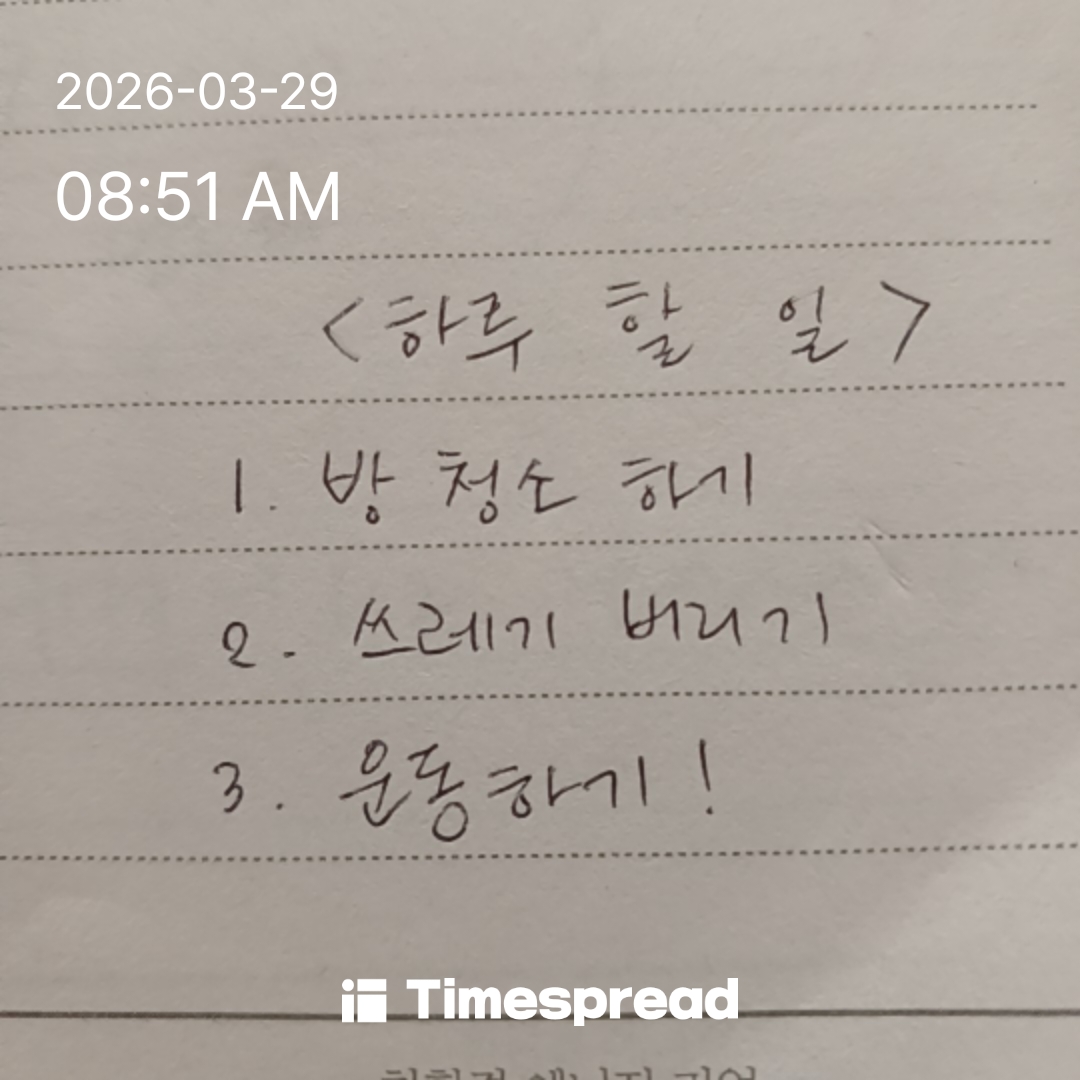 2026-03-29
08:51 AM
<하루 할 일>
1. 방 청소 하기
2. 쓰레기 버리기
3. 운동하기!
Timespread